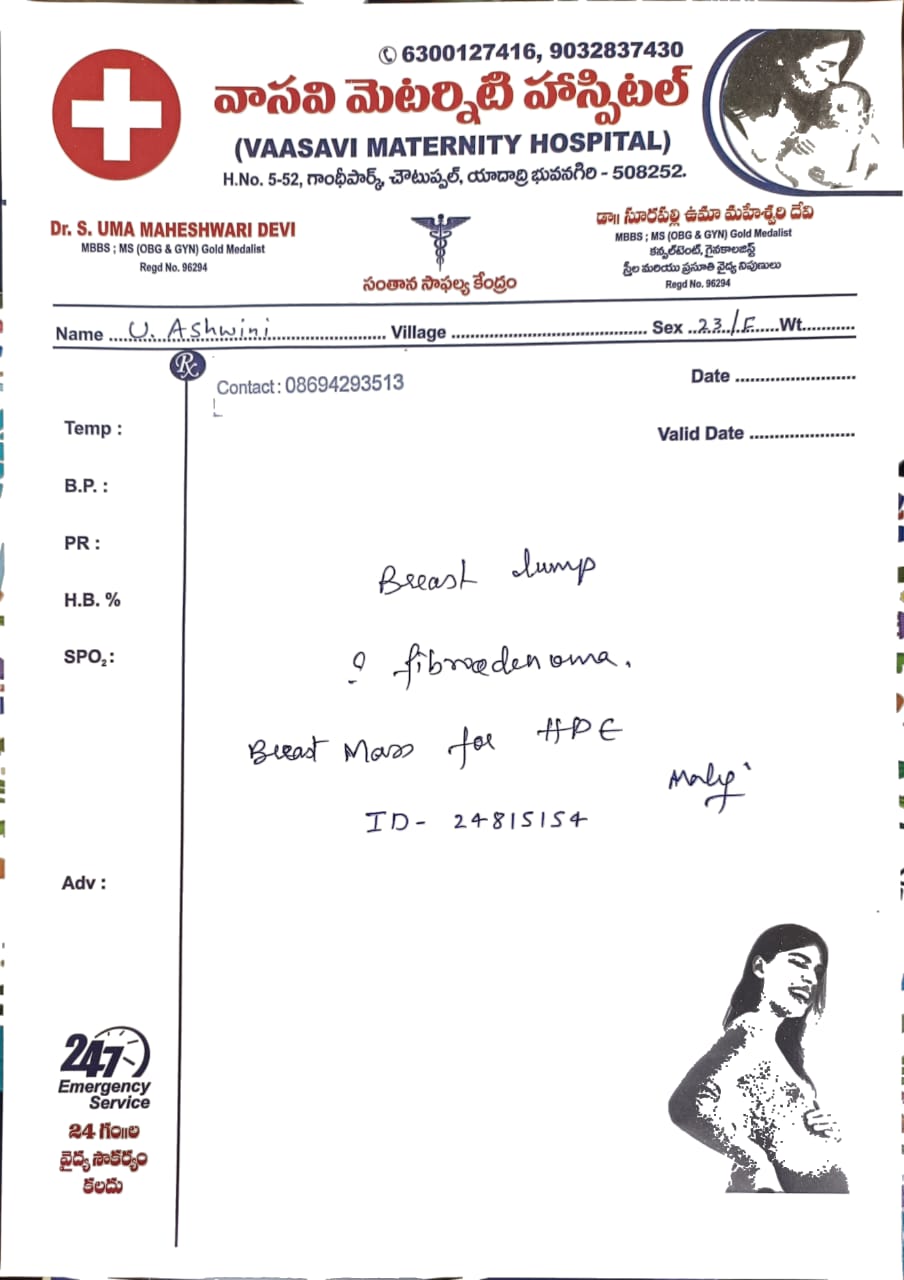 ✆ 6300127416, 9032837430
వాసవి మెటర్నిటి హాస్పిటల్
(VAASAVI MATERNITY HOSPITAL)
H.No. 5-52, గాంధీపార్క్, చౌటుప్పల్, యాదాద్రి భువనగిరి - 508252.
Dr. S. UMA MAHESHWARI DEVI
MBBS ; MS (OBG & GYN) Gold Medalist
Regd No. 96294
సంతాన సాఫల్య కేంద్రం
డా॥ సూరపల్లి ఉమా మహేశ్వరి దేవి
MBBS ; MS (OBG & GYN) Gold Medalist
కన్సల్టెంట్, గైనకాలజిస్ట్
స్త్రీల మరియు ప్రసూతి వైద్య నిపుణులు
Regd No. 96294
Name U. Ashwini Village Sex 23/F Wt.
Rx
Contact : 08694293513
Date
Valid Date
Temp :
B.P. :
PR :
H.B. %
SPO₂ :
Breast lump
? fibroadenoma.
Breast Mass for HPE
ID - 24815154
Adv :
24/7
Emergency
Service
24 గం॥ల
వైద్య సౌకర్యం
కలదు